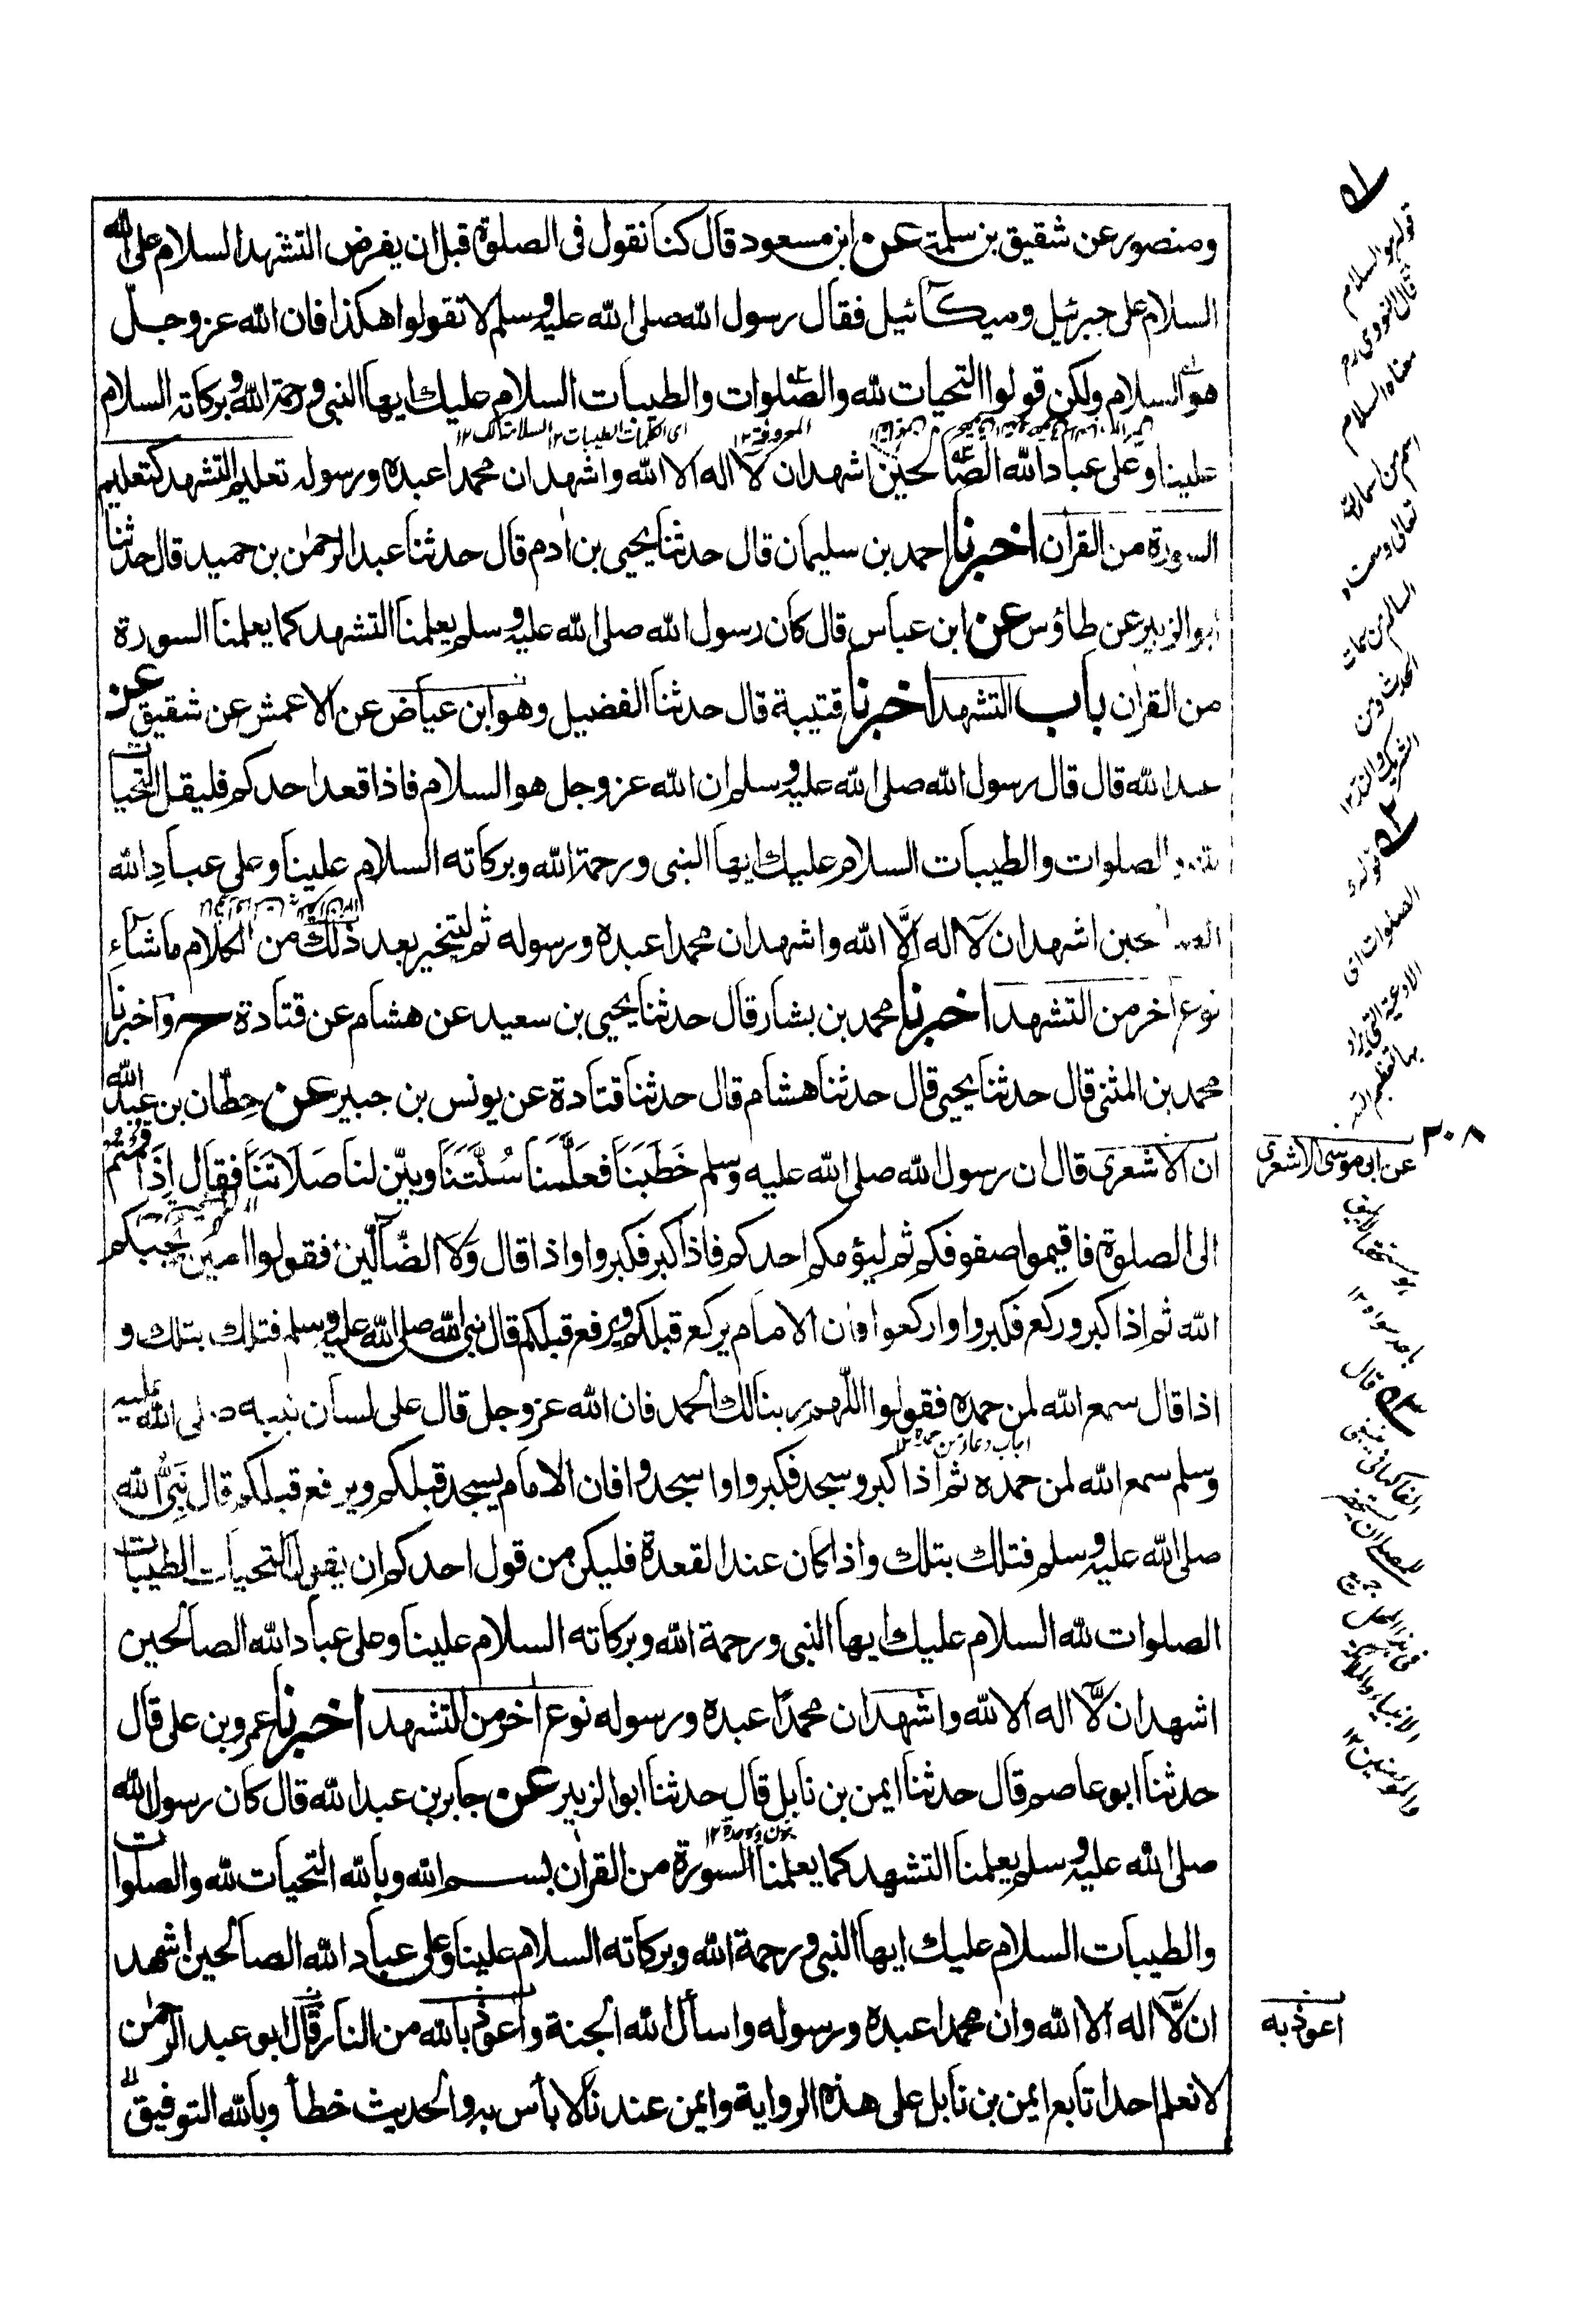 ومنصور عن شقيق بن سلمة عن ابن مسعود قال كنا نقول فى الصلوة قبل ان يفرض التشهد السلام على الله
السلام على جبرئيل وميكائيل فقال رسول الله صلى الله عليه وسلم لا تقولوا هكذا فان الله عز وجل
هو السلام ولكن قولوا التحيات لله والصلوات والطيبات السلام عليك ايها النبى ورحمة الله وبركاته السلام
علينا وعلى عباد الله الصالحين اشهد ان لآ اله الا الله واشهد ان محمدا عبده ورسوله تعليم التشهد كتعليم
السورة من القران اخبرنا احمد بن سليمان قال حدثنا يحيى بن ادم قال حدثنا عبد الرحمن بن حميد قال حدثنا
ابو الزبير عن طاؤس عن ابن عباس قال كان رسول الله صلى الله عليه وسلم يعلمنا التشهد كما يعلمنا السورة
من القران باب التشهد اخبرنا قتيبة قال حدثنا الفضيل وهو ابن عياض عن الاعمش عن شقيق عن
عبد الله قال قال رسول الله صلى الله عليه وسلم ان الله عز وجل هو السلام فاذا قعد احدكم فليقل التحيات
لله والصلوات والطيبات السلام عليك ايها النبى ورحمة الله وبركاته السلام علينا وعلى عبادِ الله
الصالحين اشهد ان لآ اله الَّا الله واشهد ان محمدا عبده ورسوله ثم ليتخير بعد ذلك من الكلام ما شآءِ
نوع اخر من التشهد اخبرنا محمد بن بشار قال حدثنا يحيى بن سعيد عن هشام عن قتادة ح واخبرنا
محمد بن المثنى قال حدثنا يحيى قال حدثنا هشام قال حدثنا قتادة عن يونس بن جبير عن حِطّان بن عبد الله
ان الاشعرى قال ان رسول الله صلى الله عليه وسلم خَطَبَنَا فعَلَّمنا سُنَّتَنَا وبيّن لنا صَلَاتَنَا فقال اِذَا قمتم
الى الصلوة فاقيموا صفوفكم ثم ليؤمكم احدكم فاذا كبر فكبروا واذا قال وَلَا الضّآلّين فقولوا امين يجبكم
الله ثم اذا كبر وركع فكبروا واركعوا فان الامام يركع قبلكم ويرفع قبلكم قال نبى الله صلى الله عليه وسلم فتلك بتلك و
اذا قال سمع الله لمن حمده فقولوا اللّهم ربنا لك الحمد فان الله عز وجل قال على لسان نبيه صلى الله عليه
وسلم سمع الله لمن حمده ثم اذا كبر وسجد فكبروا واسجدوا فان الامام يسجد قبلكم ويرفع قبلكم قال نَبِىُّ الله
صلى الله عليه وسلم فتلك بتلك واذا كان عند القعدة فليكن من قول احدكم ان يقول التحيات الطيبات
الصلوات لله السلام عليك ايها النبى ورحمة الله وبركاته السلام علينا وعلى عباد الله الصالحين
اشهد ان لَّآ اله الا الله واشهد ان محمدًا عبده ورسوله نوع اخر من التشهد اخبرنا عمرو بن على قال
حدثنا ابو عاصم قال حدثنا ايمن بن نابل قال حدثنا ابو الزبير عن جابر بن عبد الله قال كان رسول الله
بنون وموحدة ١٢
صلى الله عليه وسلم يعلمنا التشهد كما يعلمنا السورة من القران بسم الله وبالله التحيات لله والصلوات
والطيبات السلام عليك ايها النبى ورحمة الله وبركاته السلام علينا وعلى عباد الله الصالحين اشهد
ان لَّآ اله الا الله وان محمدا عبده ورسوله واسأل الله الجنة واعوذ بالله من النار قال ابو عبد الرحمن
لا نعلم احدا تابع ايمن بن نابل على هذه الرواية وايمن عندنا لا بأس به والحديث خطأ وبالله التوفيق
قوله هو السلام
قال النووى رح
معناه السلام
اسم من اسماء الله
تعالى ومعناه
السالم من سمات
الحدث ومن
الشريك والند ١٢
قوله و
الصلوات اى
الادعية التى يراد
بها تعظيم الله
٣٠٨
عن ابى موسى الاشعرى
اعوذ به